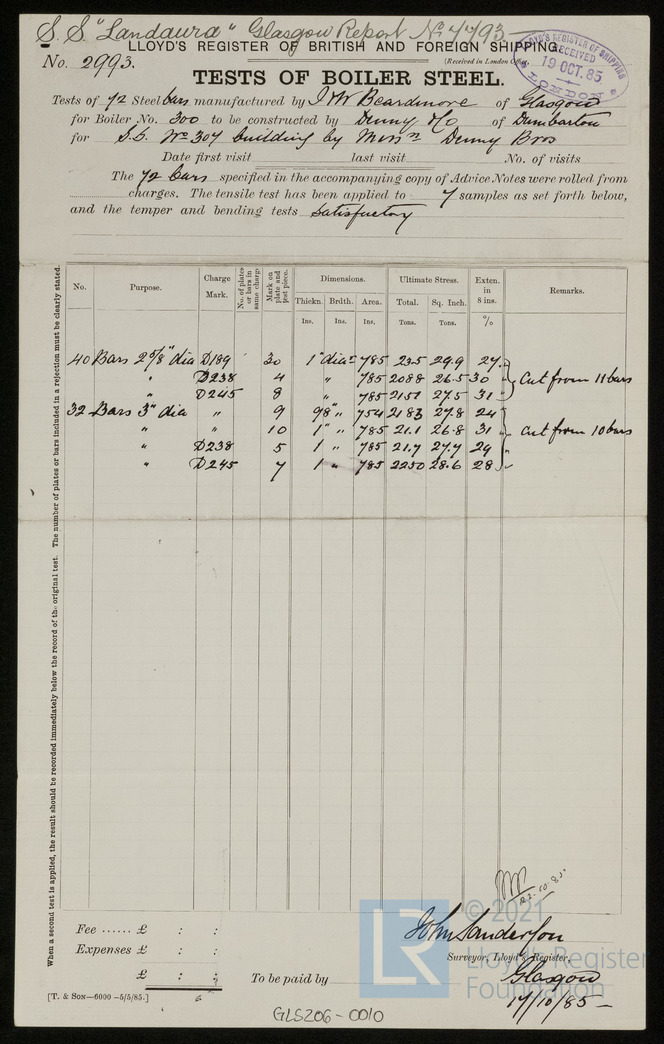 S. S. "Landaura" Glasgow Report No 7493
LLOYD'S REGISTER OF BRITISH AND FOREIGN SHIPPING.
No. 2993.
(Received in London Office
LLOYD'S REGISTER OF SHIPPING
RECEIVED
19 OCT. 85
LONDON
TESTS OF BOILER STEEL.
Tests of 72 Steel bars manufactured by J & W Beardmore of Glasgow
for Boiler No. 300 to be constructed by Denny & Co of Dumbarton
for S.S. No 307 building by Messrs Denny Bros
Date first visit last visit No. of visits
The 72 bars specified in the accompanying copy of Advice Notes were rolled from
charges. The tensile test has been applied to 7 samples as set forth below,
and the temper and bending tests satisfactory
No. Purpose. Charge Mark. No. of plates or bars in same charge Mark on plate and test piece. Dimensions. Ultimate Stress. Exten. in 8 ins. Remarks.
Thickn. Brdth. Area. Total. Sq. Inch.
Ins. Ins. Ins. Tons. Tons. %
40 Bars 2 5/8" dia D189 30 1" dia 785 23.5 29.9 27
" D238 4 " 785 2088 26.5 30 Cut from 11 bars
" D245 8 " 785 2151 27.5 31
32 Bars 3" dia " 9 98" " 754 2183 27.8 24
" " 10 1" " 785 21.1 26.8 31 Cut from 10 bars
" D238 5 1 " 785 21.7 27.7 29
" D245 7 1 " 785 2250 28.6 28
When a second test is applied, the result should be recorded immediately below the record of the original test. The number of plates or bars included in a rejection must be clearly stated.
22.10.85
Fee ...... £ : :
John Sanderson
Expenses £ : :
Surveyor, Lloyd's Register,
£ : :
To be paid by
Glasgow
[T. & Son—6000—5/5/85.]
17/10/85
GLS206-0010
LR
© 2021
Lloyd's Register
Foundation